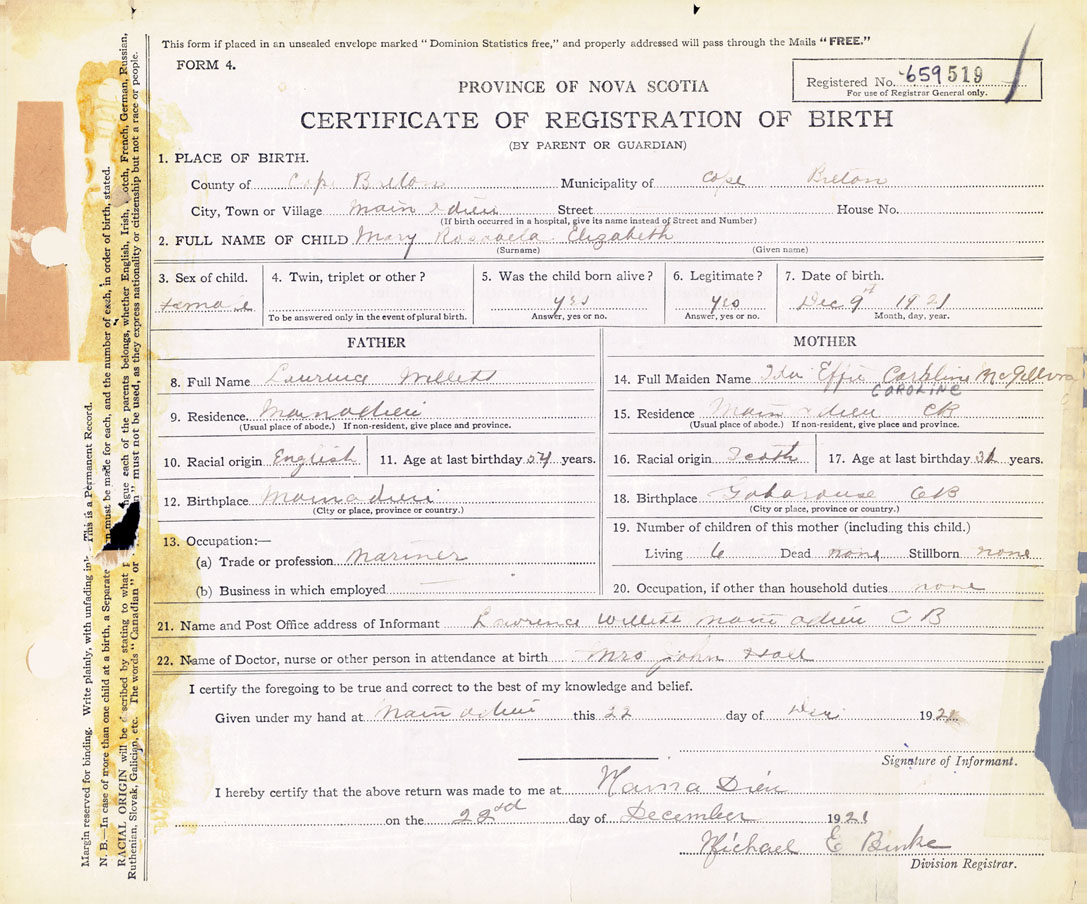 This form if placed in an unsealed envelope marked "Dominion Statistics free," and properly addressed will pass through the Mails "FREE."
FORM 4.
Registered No. 659519
For use of Registrar General only.
PROVINCE OF NOVA SCOTIA
CERTIFICATE OF REGISTRATION OF BIRTH
(BY PARENT OR GUARDIAN)
1. PLACE OF BIRTH.
County of Cape Breton Municipality of Cape Breton
City, Town or Village Main a dieu Street House No.
(If birth occurred in a hospital, give its name instead of Street and Number)
2. FULL NAME OF CHILD Mary Elizabeth
(Surname) (Given name)
3. Sex of child. 4. Twin, triplet or other? 5. Was the child born alive? 6. Legitimate? 7. Date of birth.
female yes yes Dec 9th 1921
To be answered only in the event of plural birth. Answer, yes or no. Answer, yes or no. Month, day, year.
FATHER MOTHER
8. Full Name Laurence Willett 14. Full Maiden Name Ida Effie Caroline McGillvra
CAROLINE
9. Residence. Mainadieu 15. Residence Main a dieu CB
(Usual place of abode.) If non-resident, give place and province. (Usual place of abode.) If non-resident, give place and province.
10. Racial origin English 11. Age at last birthday 54 years. 16. Racial origin Scotch 17. Age at last birthday years.
12. Birthplace Mainadieu 18. Birthplace Gabarouse CB
(City or place, province or country.) (City or place, province or country.)
13. Occupation:— 19. Number of children of this mother (including this child.)
(a) Trade or profession Mariner Living 6 Dead none Stillborn none
(b) Business in which employed 20. Occupation, if other than household duties none
21. Name and Post Office address of Informant Lawrence Willett Main adieu CB
22. Name of Doctor, nurse or other person in attendance at birth Mrs John Hall
I certify the foregoing to be true and correct to the best of my knowledge and belief.
Given under my hand at Main adieu this 22 day of Dec 1921
Signature of Informant.
I hereby certify that the above return was made to me at Maina Dieu
on the 22nd day of December 1921
Michael E Burke
Division Registrar.
Margin reserved for binding. Write plainly, with unfading ink This is a Permanent Record.
N. B.—In case of more than one child at a birth, a Separate must be made for each, and the number of each, in order of birth, stated.
RACIAL ORIGIN will be described by stating to what each of the parents belongs, whether English, Irish, Scotch, French, German, Russian,
Ruthenian, Slovak, Galician, etc. The words "Canadian" or must not be used, as they express nationality or citizenship but not a race or people.